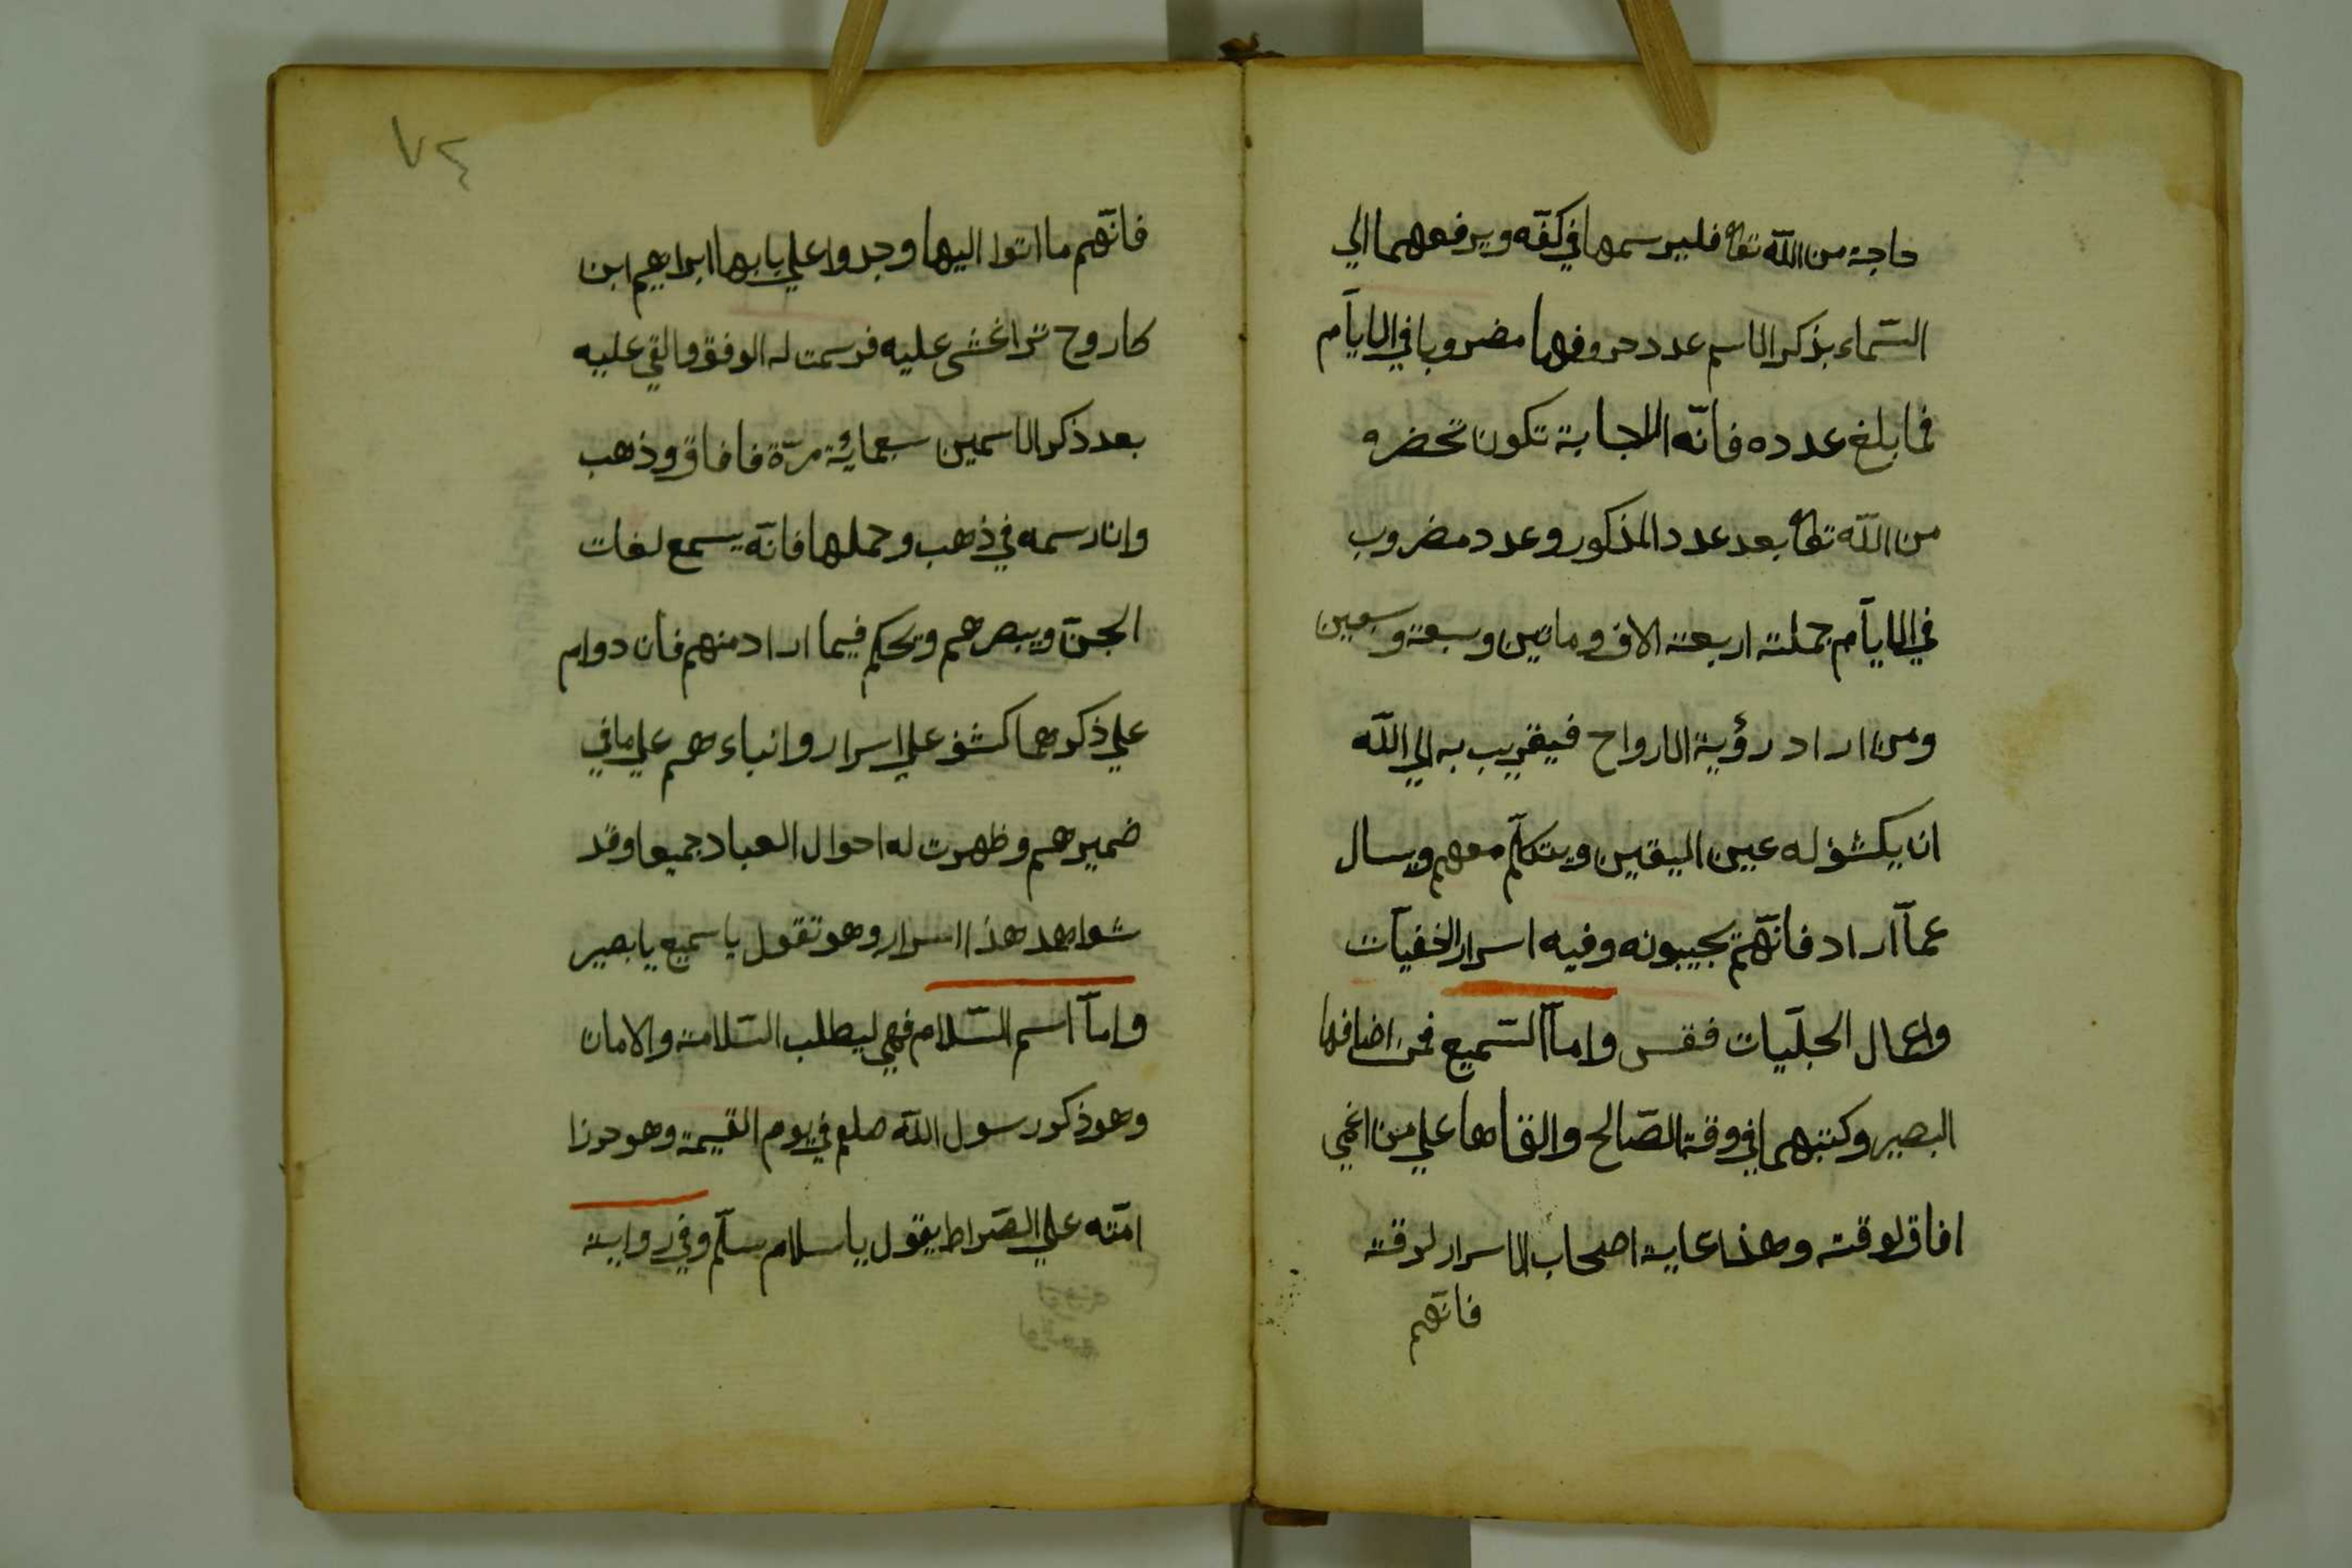 حاجة من اللّه تعا فليرسمها في كفّه ويرفعهما الي
السّماء بذكر الاسم عدد حروفها مضروبا في الايآم
فما بلغ عدده فانّه الاجابة تكون تحضره
من اللّه تعا بعد عدد المذكور وعدد مضروب
في الايآم جملته اربعة الاف وماتين وسبعة وسبعين
ومن اراد رؤية الارواح فيقريب به الي اللّه
ان يكشف له عين اليقين ويتكلّم معهم ويسال
عمآ اراد فانّهم يجيبونه وفيه اسرار الخفيآت
واعمال الجليّات فقس وامآ السّميع فمن اضافها
البصير وكتبهما في وقته الصّالح والقاها علي من اغمي
افاق لوقته وهذا غاية اصحاب الاسرار لوقته
فانّهم
٧٤
فانّهم ما اتوا اليها وجدوا علي بابها ابراهيم ابن
كاروح غشي عليه فرسمت له الوفق والقي عليه
بعد ذكر الاسمين سبعمائة مرّة فافاق وذهب
وان رسمه في ذهب وحملها فانّه يسمع لغات
الجنّ ويبصرهم ويحكم فيما اراد منهم فان دوام
علي ذكرهما كشف علي اسرار وانباءهم علي ما في
ضميرهم وظهرت له احوال العباد جميعا وقد
شواهد هذا اسرار وهو تقول يا سميع يا بصير
وامآ اسم السّلام فهي ليطلب السّلامة والامان
وهو ذكور سول اللّه صلعم في يوم القيمة وهو حرزا
امّته علي الصّراط يقول يا سلام سلّم وفي رواية